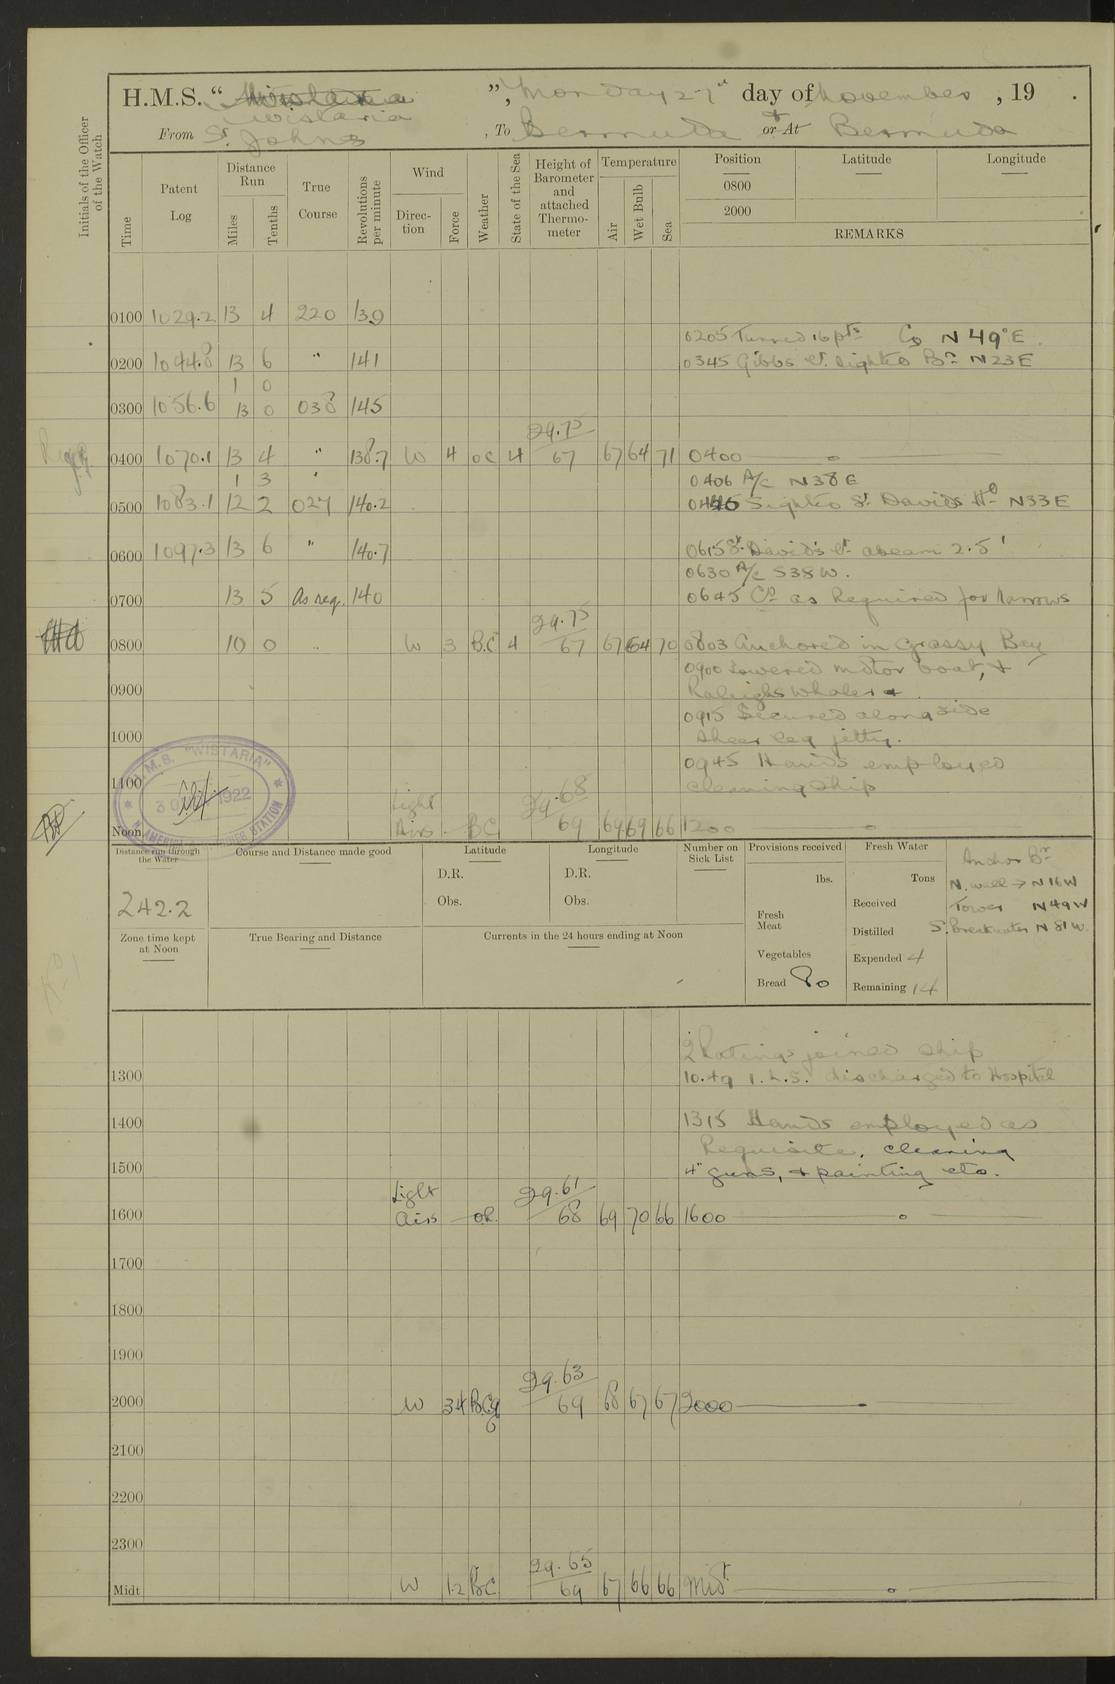 H.M.S. “ Wistaria ”, Monday 27th day of November , 19 .
Wistaria
From St. Johns , To Bermuda or At Bermuda
Initials of the Officer of the Watch
Time Patent Log Distance Run Miles Tenths True Course Revolutions per minute Wind Direc-tion Force Weather State of the Sea Height of Barometer and attached Thermo-meter Temperature Air Wet Bulb Sea Position Latitude Longitude
0800
2000
REMARKS
0100 1029.2 13 4 220 139
0205 Turned 16 pts Co N 49° E.
0200 1044.8 13 6 " 141 0345 Gibbs Lt. sighted Br. N 23 E
1 0
0300 1056.6 13 0 038 145
29.75
0400 1070.1 13 4 " 138.7 W 4 oc 4 67 67 64 71 0400
1 3 " 0406 A/c N38E
0500 1083.1 12 2 027 140.2 0445 Sighted St. Davids Hd N33E
0600 1097.3 13 6 " 140.7 0615 St. Davids Lt. abeam 2.5'
0630 A/c S38W.
0700 13 5 As req. 140 0645 Co as Required for Narrows
29.75
0800 10 0 .. W 3 B.C 4 67 67 64 70 0803 Anchored in Grassy Bay
0900 Lowered motor boat, &
0900 Raleighs whaler
0915 Secured alongside
1000 Sheer leg jetty.
0945 Hands employed
1100 cleaning ship
H.M.S. "WISTARIA"
30 NOV 1922
Light 29.68
Noon Airs BC 69 69 69 66 1200
Distance run through the Water Course and Distance made good Latitude Longitude Number on Sick List Provisions received Fresh Water Anchor Br.
D.R. D.R. lbs. Tons N. wall → N16W
242.2 Obs. Obs. Received Tower N49W
Fresh Meat Distilled S. Breakwater N 81 W.
Zone time kept at Noon True Bearing and Distance Currents in the 24 hours ending at Noon
Vegetables Expended 4
Bread 80 Remaining 14
2 Ratings joined ship
1300 10.49 1. L.S. discharged to Hospital
1400 1315 Hands employed as
Requisite, cleaning
1500 4" guns, & painting etc.
Light 29.61
1600 Airs 68 69 70 66 1600
1700
1800
1900
29.63
2000 W 34 B.C.q 69 68 67 67 2000
2100
2200
2300
29.65
Midt W 1-2 B.C. 69 67 66 66 Midt